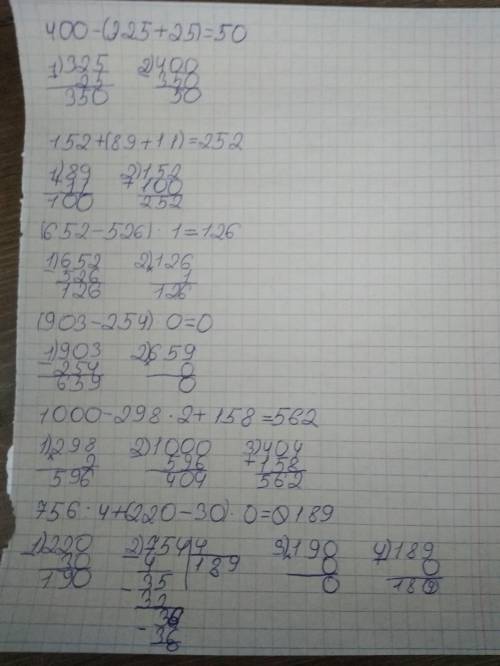 400-(325+25)=50
1)325 2)400
25 350
350 50
152+(89+11)=252
1)89 2)152
+11 +100
100 252
(652-526)·1=126
1)652 2)126
-526 1
126 126
(903-254)·0=0
1)903 2)659
-254 0
659 0
1000-298·2+158=562
1)298 2)1000 3)404
2 596 +158
596 404 562
756:4+(220-30)·0=189
1)220 2)754 4 3)190 4)189
30 4 189 0 0
190 35 0 189
-32
36
-36